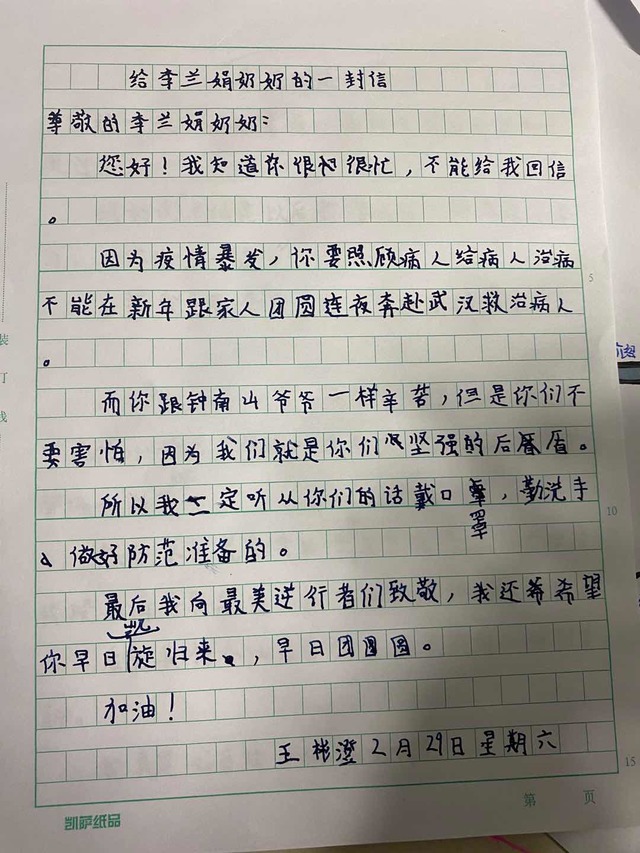 给李兰娟奶奶的一封信
尊敬的李兰娟奶奶：
您好！我知道你很很忙，不能给我回信
。
因为疫情暴发，你要照顾病人给病人治病
5
不能在新年跟家人团圆连夜奔赴武汉救治病人
。
而你跟钟南山爷爷一样辛苦，但是你们不
要害怕，因为我们就是你们坚强的后盾。
所以我一定听从你们的话戴口罩，勤洗手
10
、做好防范准备的。
最后我向最美逆行者们致敬，我还希望
你早日凯旋归来，早日团圆。
加油！
王彬澄2月29日星期六
15
第 页
凯萨纸品
装
订
线